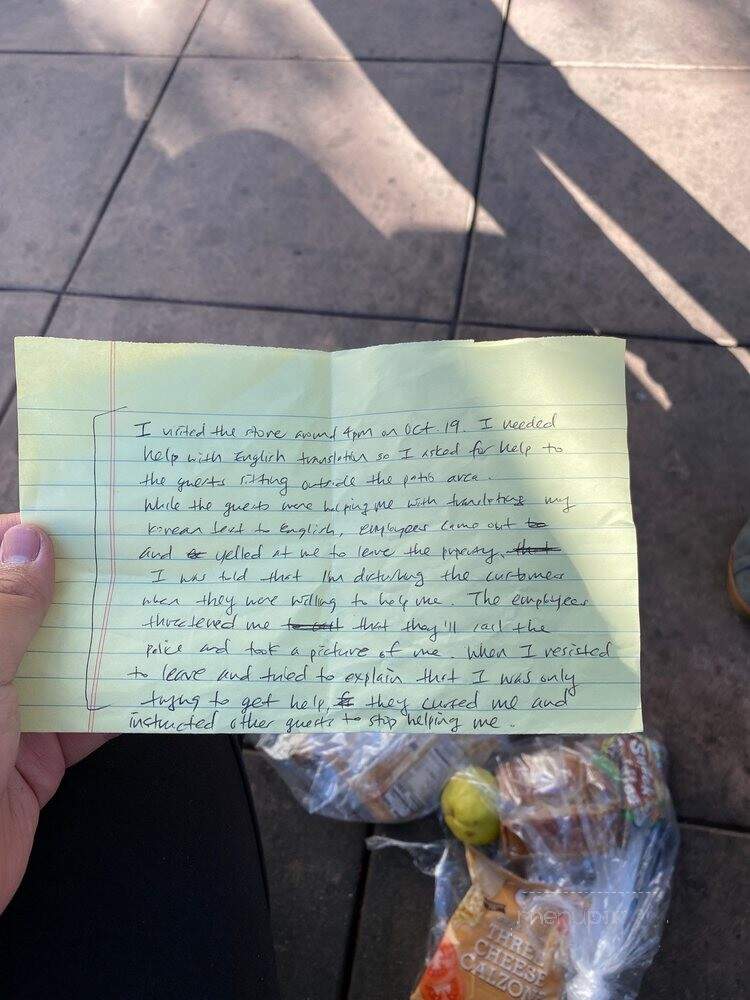 I visited the store around 4pm on Oct. 19. I needed
help with English translation so I asked for help to
the guests sitting outside the patio area.
While the guests were helping me with translating my
Korean text to English, employees came out to
and yelled at me to leave the property, that
I was told that I'm disturbing the customers
when they were willing to help me. The employees
threatened me to call that they'll call the
police and took a picture of me. When I resisted
to leave and tried to explain that I was only
trying to get help, they cursed me and
instructed other guests to stop helping me.
THREE
CHEESE
CALZON
menupix